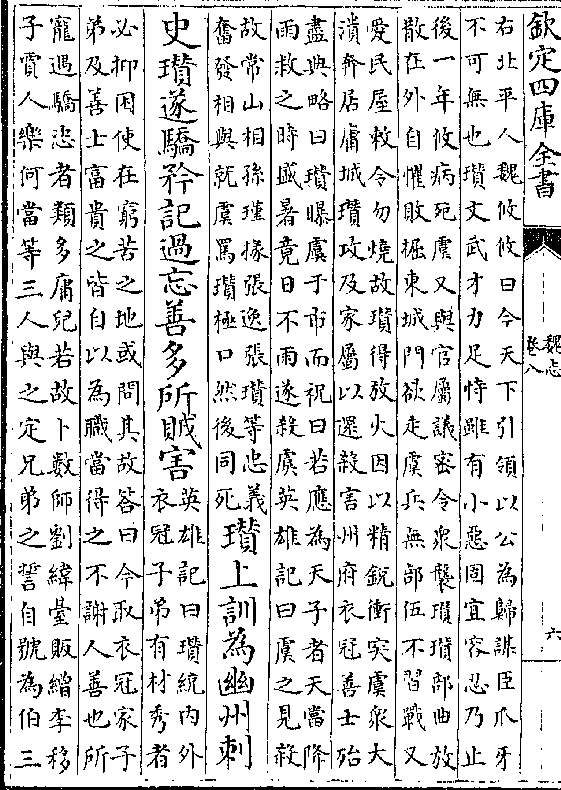 欽定四庫全書
魏志
卷八
六
右北平人魏攸攸曰今天下引領以公為歸謀臣爪牙
不可無也瓚文武才力足恃雖有小惡固宜容忍乃止
後一年攸病死虞又與官屬議密令衆襲瓚瓚部曲放
散在外自懼敗掘東城門欲走虞兵無部伍不習戰又
愛民屋敕令勿燒故瓚得放火因以精銳衝突虞衆大
潰奔居庸城瓚攻及家屬以還殺害州府衣冠善士殆
盡典略曰瓚曝虞于市而祝曰若應為天子者天當降
雨救之時盛暑竟日不雨遂殺虞英雄記曰虞之見殺
故常山相孫瑾掾張逸張瓚等忠義
奮發相與就虞罵瓚極口然後同死
瓚上訓為幽州刺
史瓚遂驕矜記過忘善多所賊害
英雄記曰瓚統内外
衣冠子弟有材秀者
必抑困使在窮苦之地或問其故答曰今取衣冠家子
弟及善士富貴之皆自以為職當得之不謝人善也所
寵遇驕恣者類多庸兒若故卜數師劉緯臺販繒李移
子賈人樂何當等三人與之定兄弟之誓自號為伯三